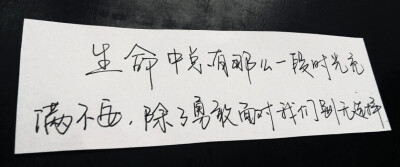 生命中总有那么一段时光充
满不安,除了勇敢面对我们别无选择